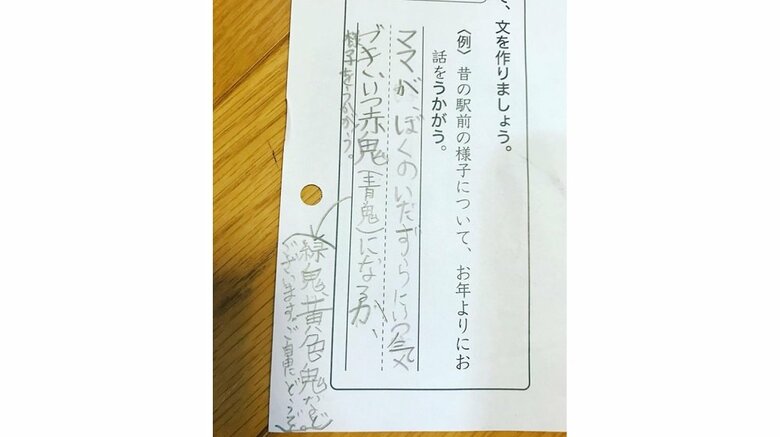 て、文を作りましょう。
〈例〉昔の駅前の様子について、お年よりにお
話をうかがう。
ママが、ぼくのいたずらにいつ気
づき、いつ赤鬼(青鬼)になるか、
様子をうかがう。
緑鬼、黄色鬼など
ございます。ご自由にどうぞ。